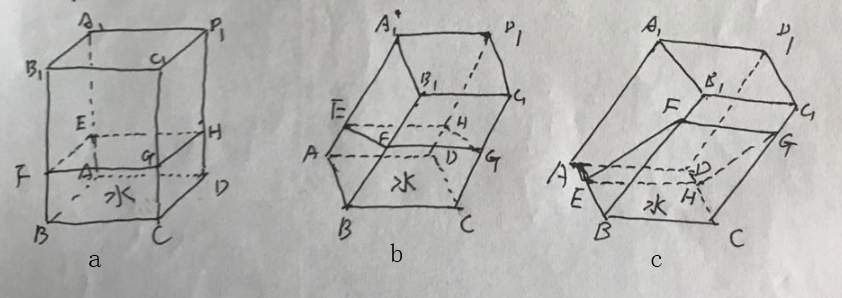 A₁ D₁
B₁ C₁
E H
F G
A 水 D
B C
a
A₁ D₁
B₁ C₁
E H
F
A D G
水
B C
b
A₁ D₁
B₁ C₁
F G
A D
E H
水
B C
c